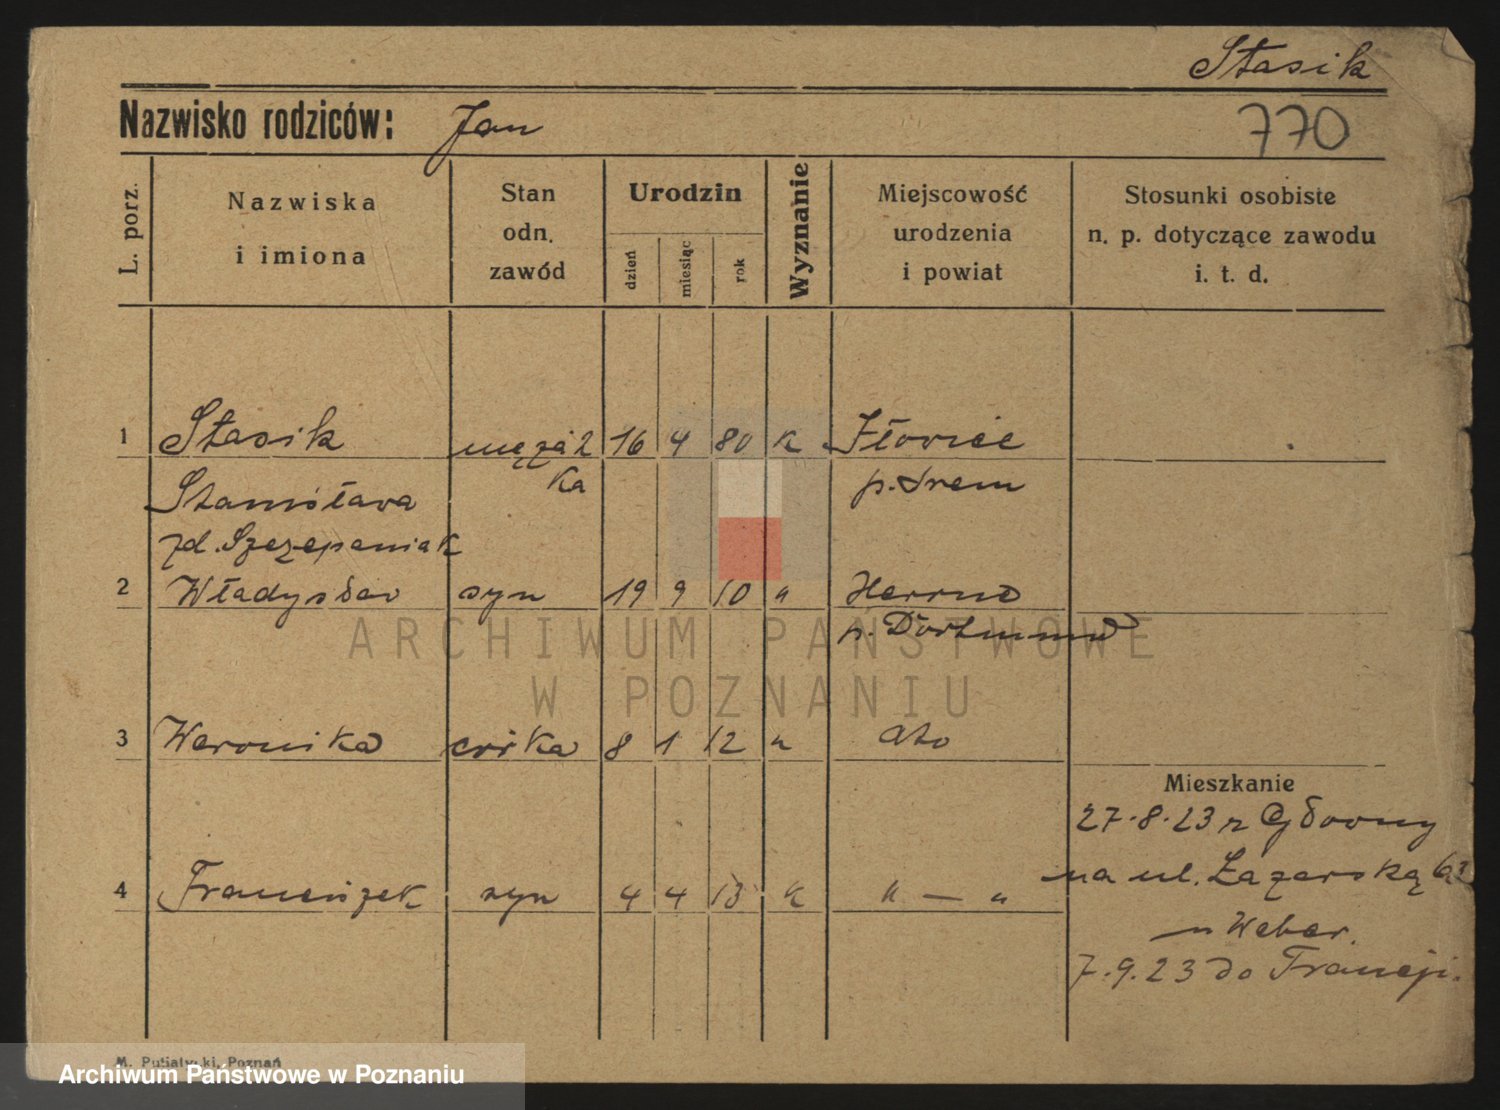 Stasik
Nazwisko rodziców: Jan
770
L. porz.
Nazwiska
i imiona
Stan
odn.
zawód
Urodzin
dzień
miesiąc
rok
Wyznanie
Miejscowość
urodzenia
i powiat
Stosunki osobiste
n. p. dotyczące zawodu
i. t. d.
1 Stasik mężat 16 4 80 k Iłowiec
ka p. Śrem
Stanisława
zd. Szczepaniak
2 Władysław syn 19 9 10 " Herne
p. Dortmund
3 Weronika córka 8 1 12 " dto
Mieszkanie
27.8.23 z Główny
4 Franciszek syn 4 4 13 k " — "
na ul. Łazarską
u Weber.
7.9.23 do Francji.
M. Putiatycki, Poznań
ARCHIWUM PAŃSTWOWE
W POZNANIU
Archiwum Państwowe w Poznaniu